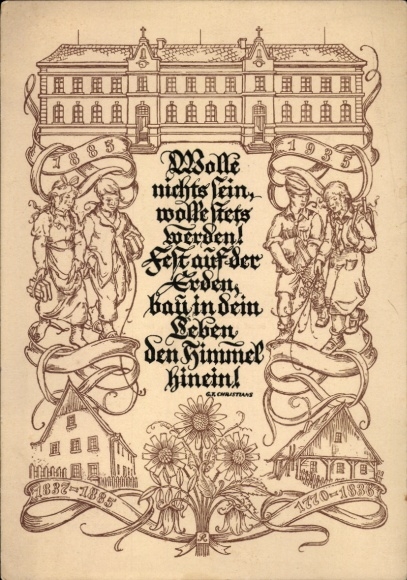 1885
1935
Wolle
nichts sein,
wolle stets
werden!
Fest auf der
Erden,
bau in dein
Leben
den Himmel
hinein!
G.R. CHRISTIANS
1837-1885
1770-1836